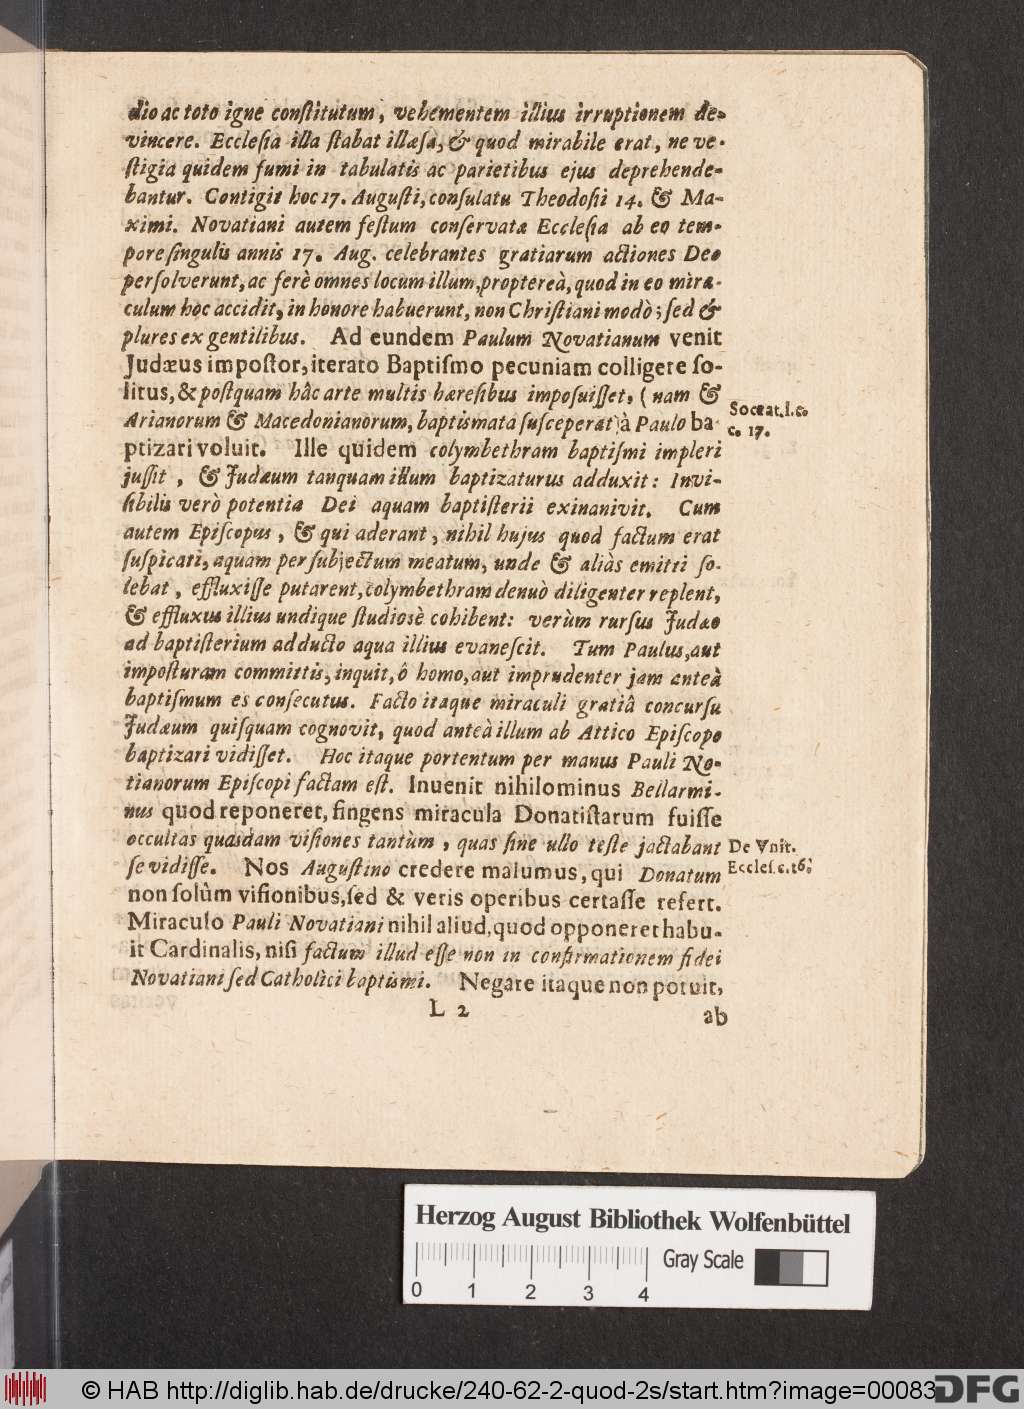 dio ac toto igne conſtitutum, vehementem illius irruptionem de-
vincere. Eccleſia illa ſtabat illæſa, & quod mirabile erat, ne ve-
ſtigia quidem fumi in tabulatis ac parietibus ejus deprehende-
bantur. Contigit hoc 17. Auguſti, conſulatu Theodoſii 14. & Ma-
ximi. Novatiani autem feſtum conſervata Eccleſia ab eo tem-
pore ſingulis annis 17. Aug. celebrantes gratiarum actiones Deo
perſolverunt, ac ferè omnes locum illum, propterea, quod in eo mira-
culum hoc accidit, in honore habuerunt, non Chriſtiani modò; ſed &
plures ex gentilibus. Ad eundem Paulum Novatianum venit
Judæus impoſtor, iterato Baptiſmo pecuniam colligere ſo-
litus, & poſtquam hâc arte multis hæreſibus impoſuiſſet, (nam &
Arianorum & Macedonianorum, baptismata ſuſceperat) à Paulo ba-
ptizari voluit. Ille quidem colymbethram baptiſmi impleri
juſſit, & Judæum tanquam illum baptizaturus adduxit: Invi-
ſibilis verò potentia Dei aquam baptiſterii exinanivit. Cum
autem Epiſcopus, & qui aderant, nihil hujus quod factum erat
ſuſpicati, aquam per ſubjectum meatum, unde & aliàs emitti ſo-
lebat, effluxiſſe putarent, colymbethram denuò diligenter replent,
& effluxus illius undique ſtudiosè cohibent: verùm rurſus Judæo
ad baptiſterium adducto aqua illius evaneſcit. Tum Paulus, aut
impoſturam committis, inquit, ô homo, aut imprudenter jam anteà
baptiſmum es conſecutus. Facto itaque miraculi gratiâ concurſu
Judæum quiſquam cognovit, quod anteà illum ab Attico Epiſcopo
baptizari vidiſſet. Hoc itaque portentum per manus Pauli No-
tianorum Epiſcopi factam eſt. Invenit nihilominus Bellarmi-
nus quod reponeret, fingens miracula Donatiſtarum fuiſſe
occultas quasdam viſiones tantùm, quas ſine ullo teſte jactabant
ſe vidiſſe. Nos Auguſtino credere malumus, qui Donatum
non ſolùm viſionibus, ſed & veris operibus certaſſe refert.
Miraculo Pauli Novatiani nihil aliud, quod opponeret habu-
it Cardinalis, niſi factum illud eſſe non in confirmationem fidei
Novatiani ſed Catholici baptismi. Negare itaque non potuit,
L 2
ab
Socrat. l. 
c. 17.
De Vnit.
Eccleſ. c. 16.
Herzog August Bibliothek Wolfenbüttel
Gray Scale
0 1 2 3 4
© HAB http://diglib.hab.de/drucke/240-62-2-quod-2s/start.htm?image=00083
DFG